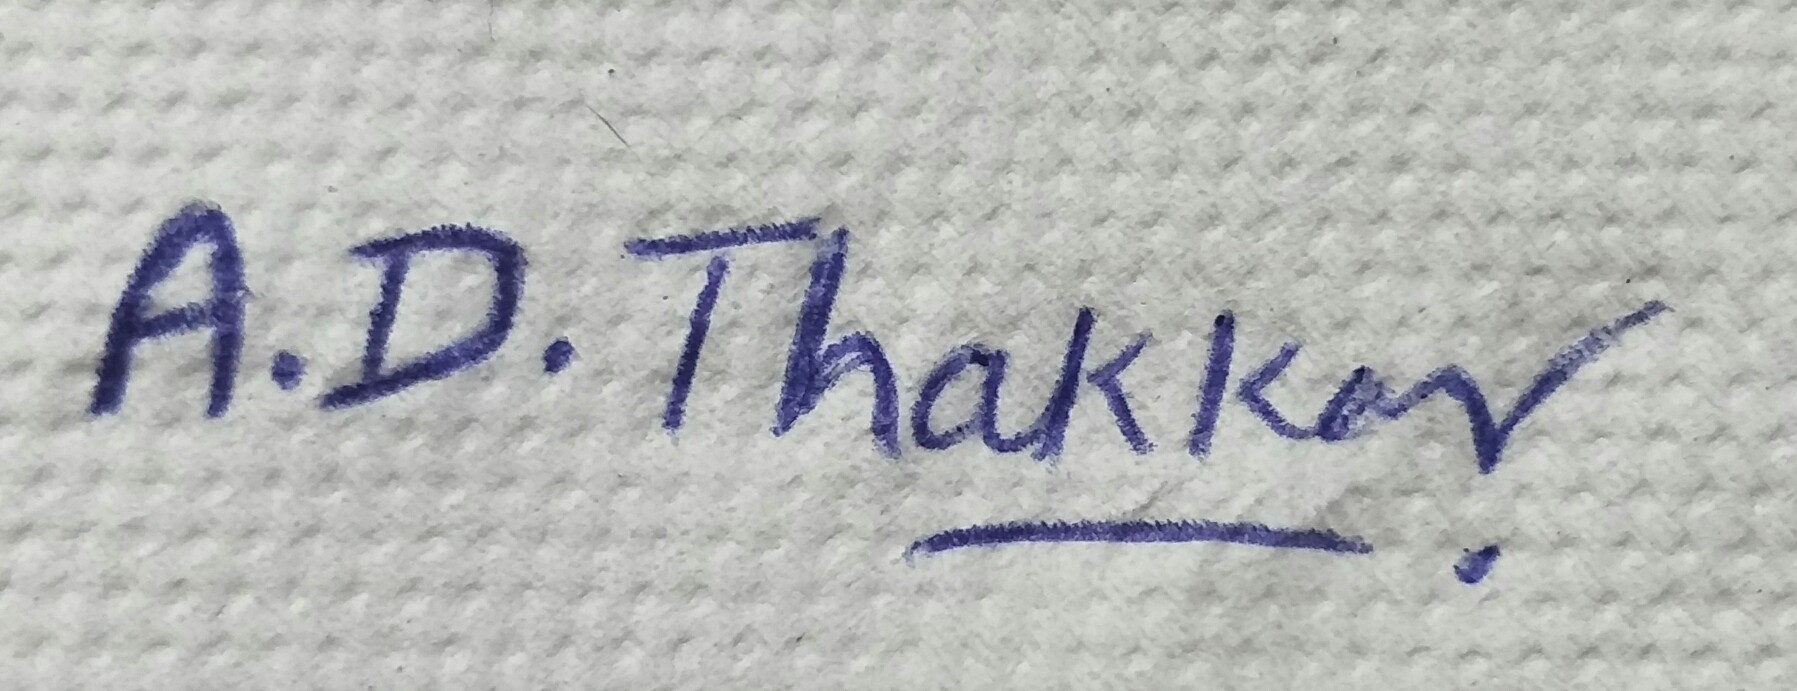 A.D. Thakkar